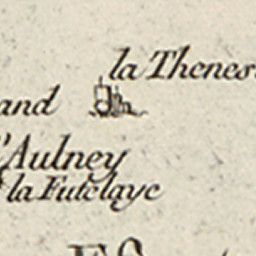 la Thenes
and
l'Aulney
la Futelaye